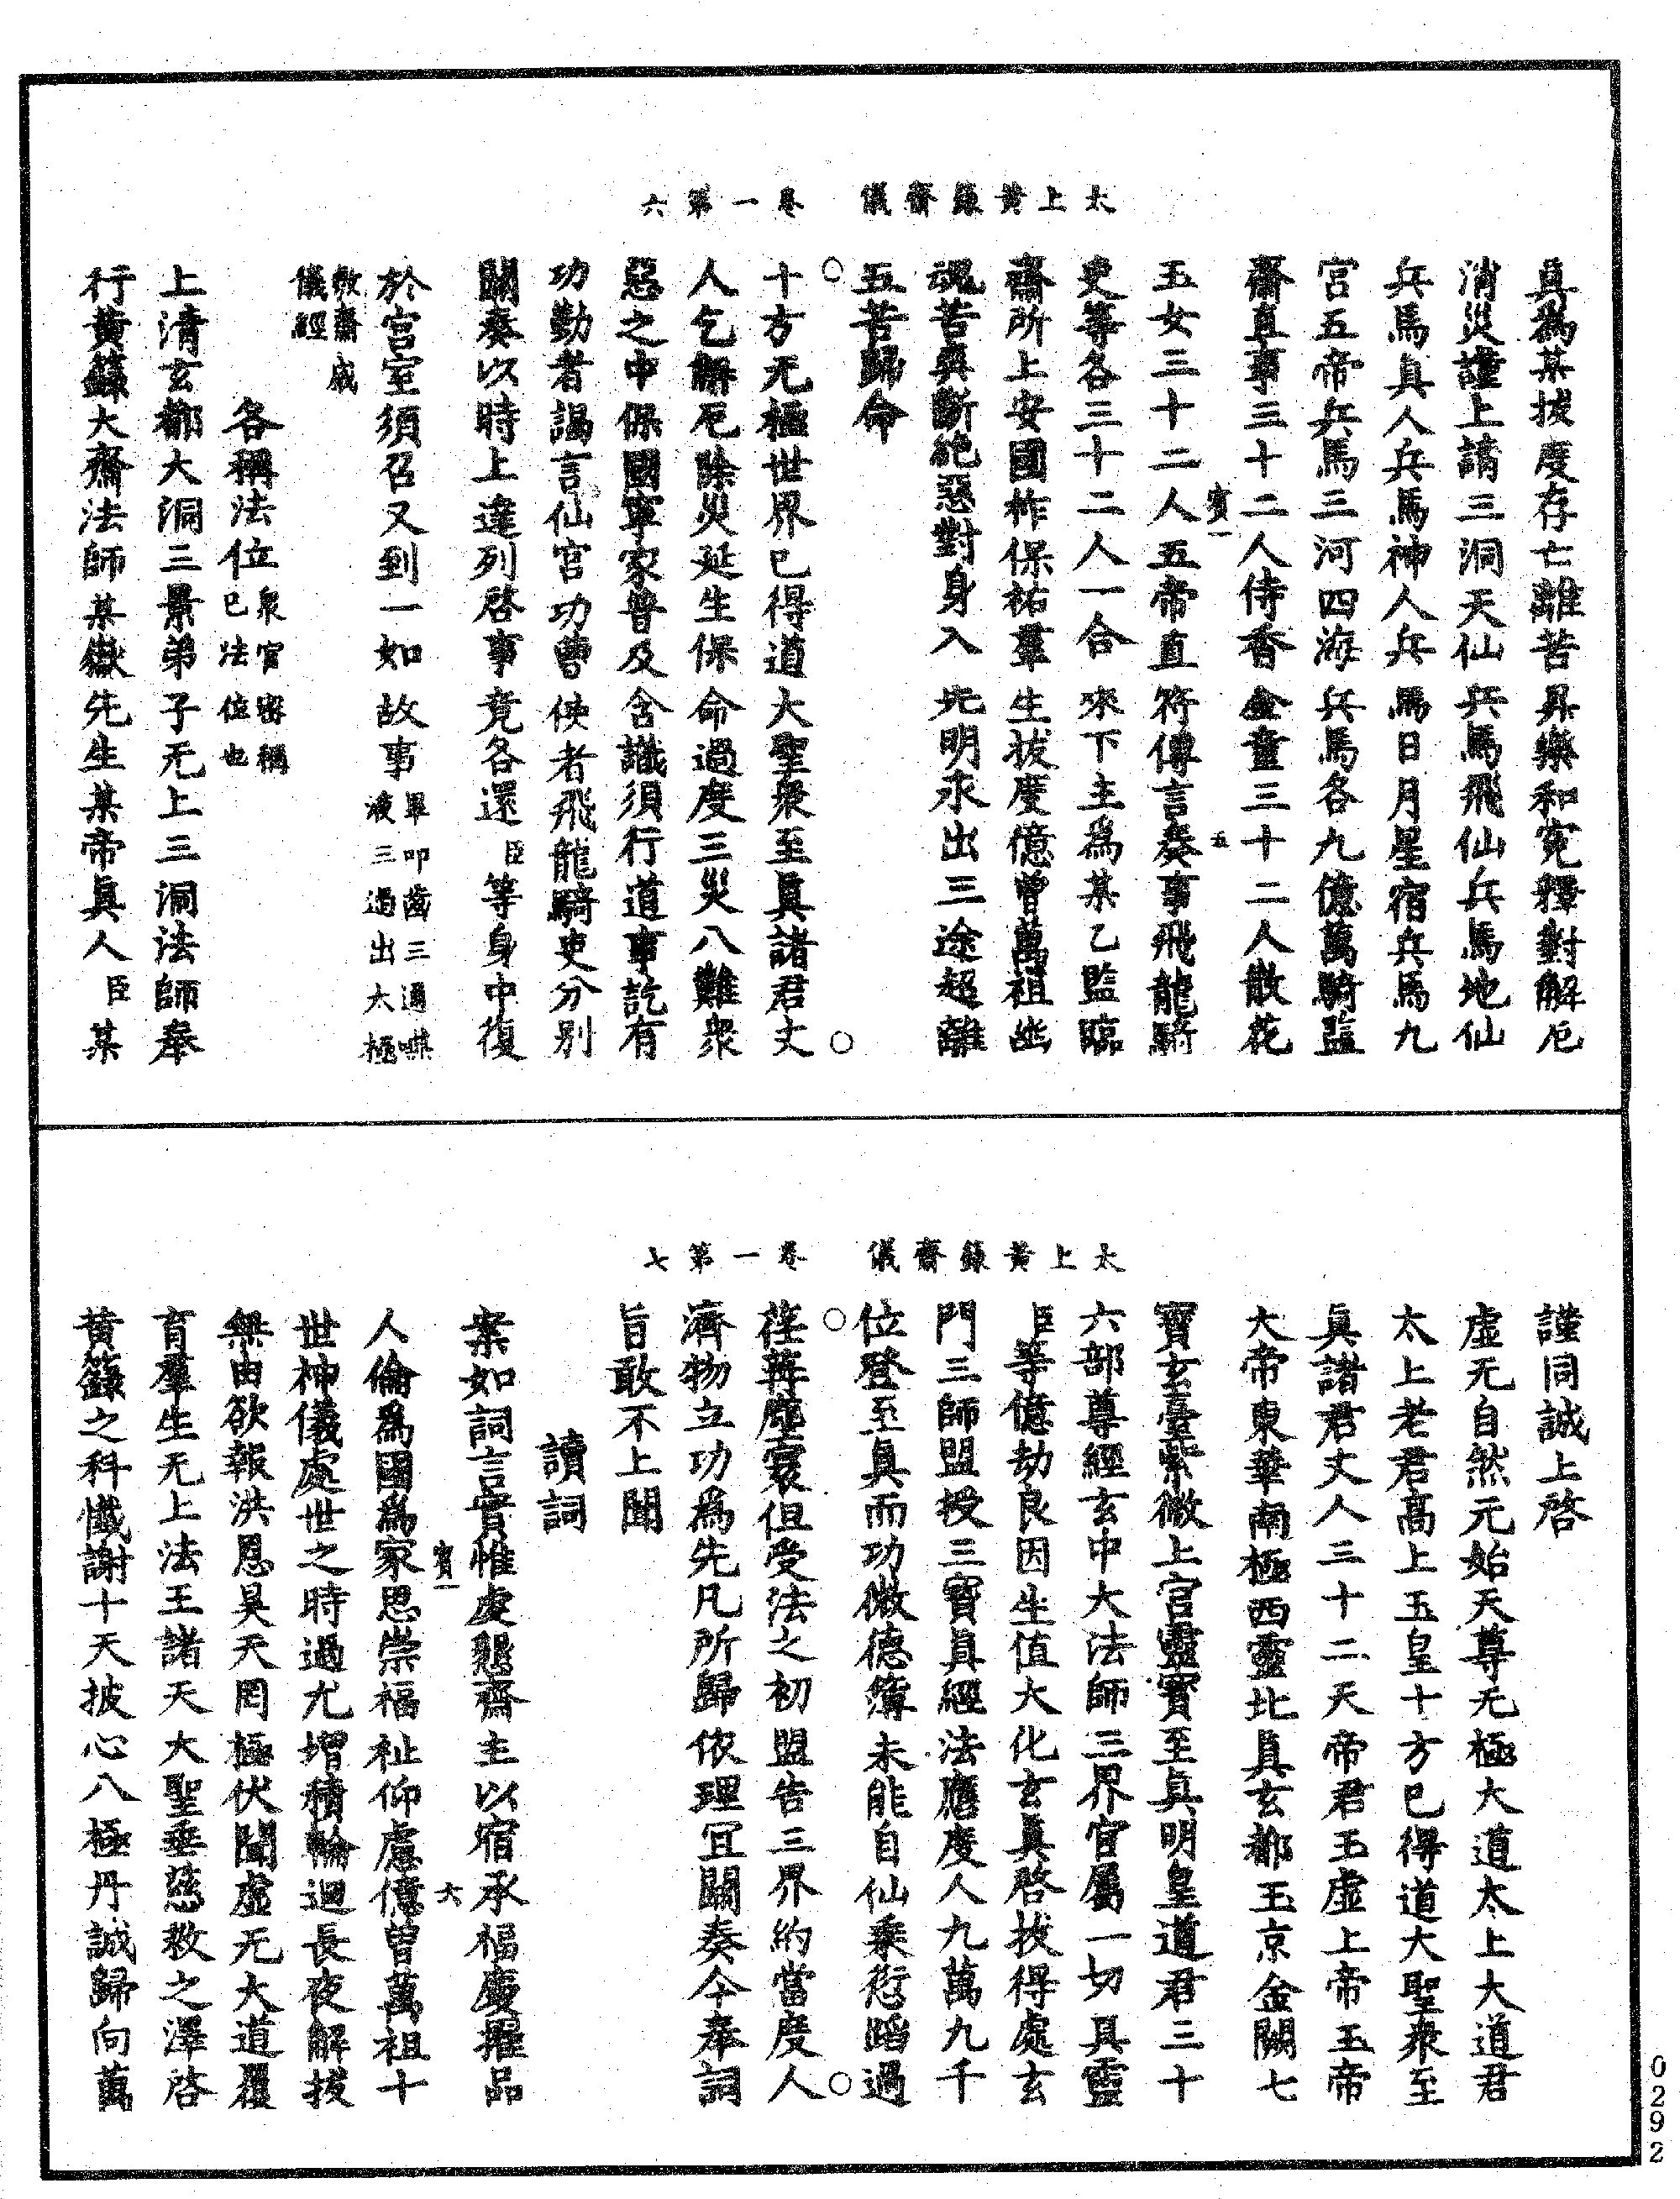 太上黃籙齋儀　卷一　第六
眞爲某拔度存亡離苦昇樂和寃釋對解厄
消災謹上請三洞天仙兵馬飛仙兵馬地仙
兵馬眞人兵馬神人兵馬日月星宿兵馬九
宮五帝兵馬三河四海兵馬各九億萬騎監
齋直事三十二人侍香金童三十二人散花
賓一　五
五女三十二人五帝直符傳言奏事飛龍騎
吏等各三十二人一合來下主爲某乙監臨
齋所上安國柞保祐羣生拔度億曾萬祖幽
魂苦爽斷絶惡對身入光明永出三途超離
五苦歸命
○十方无極世界已得道大聖衆至眞諸君丈○
人乞解厄除災延生保命過度三災八難衆
惡之中保國寧家普及含識須行道事訖有
功勤者謁言仙官功曹使者飛龍騎吏分別
關奏以時上達列啓事竟各還臣等身中復
於宮室須召又到一如故事畢叩齒三通嚥
液三過出太極
敷齋戒
儀經
各稱法位衆官密稱
已法位也
上清玄都大洞三景弟子无上三洞法師奉
行黃籙大齋法師某嶽先生某帝眞人臣某
太上黃籙齋儀　卷一　第七
謹同誠上啓
虛无自然元始天尊无極大道太上大道君
太上老君高上玉皇十方已得道大聖衆至
眞諸君丈人三十二天帝君玉虛上帝玉帝
大帝東華南極西靈北眞玄都玉京金闕七
寶玄臺紫微上官靈寶至眞明皇道君三十
六部尊經玄中大法師三界官屬一切具靈
臣等億劫良因生值大化玄眞啓拔得處玄
門三師盟授三寶眞經法應度人九萬九千
位登至眞而功微德薄未能自仙乘愆蹈過
○荏苒塵寰但受法之初盟告三界約當度人○
濟物立功爲先凡所歸依理宜關奏今奉詞
旨敢不上聞
讀詞
案如詞言實惟虔懇齋主以宿承福慶擢品
賓一　六
人倫爲國爲家思崇福祉仰慮億曾萬祖十
世神儀處世之時過尤增積輪迴長夜解拔
無由欲報洪恩昊天罔極伏聞虛无大道覆
育羣生无上法王諸天大聖垂慈救之澤啓
黃籙之科懺謝十天披心八極丹誠歸向萬
0292